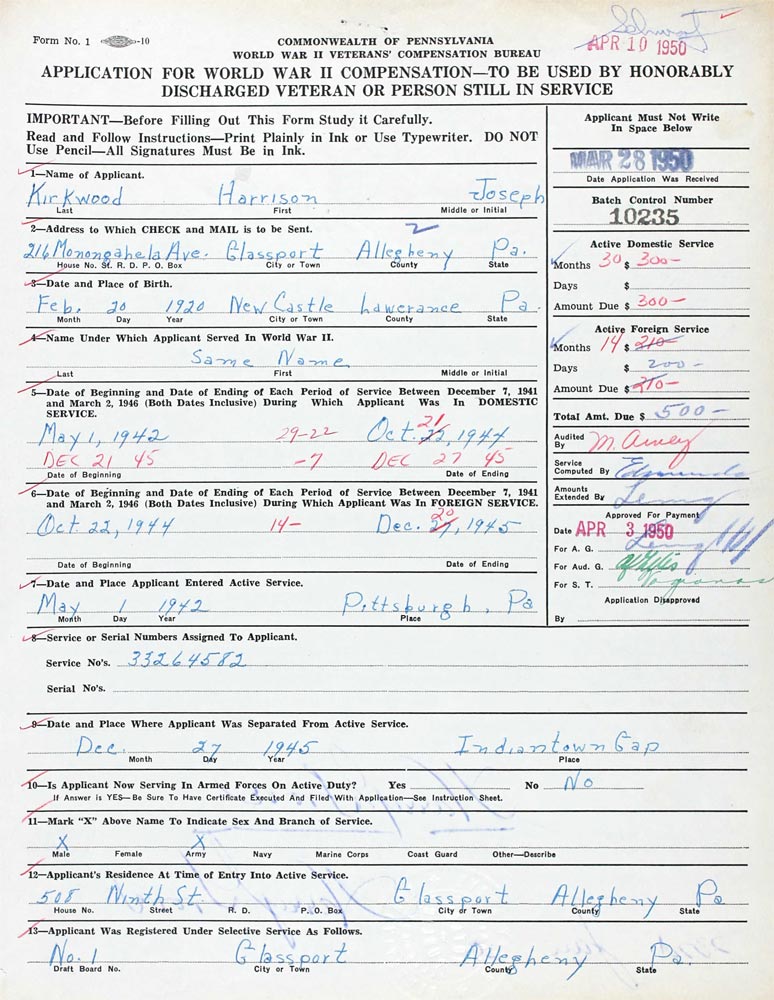 Form No. 1 -10
APR 10 1950
COMMONWEALTH OF PENNSYLVANIA
WORLD WAR II VETERANS' COMPENSATION BUREAU
APPLICATION FOR WORLD WAR II COMPENSATION—TO BE USED BY HONORABLY
DISCHARGED VETERAN OR PERSON STILL IN SERVICE
IMPORTANT—Before Filling Out This Form Study it Carefully.
Read and Follow Instructions—Print Plainly in Ink or Use Typewriter. DO NOT
Use Pencil—All Signatures Must Be in Ink.
1—Name of Applicant.
Kirkwood Harrison Joseph
Last First Middle or Initial
2—Address to Which CHECK and MAIL is to be Sent. 2
216 Monongahela Ave. Glassport Allegheny Pa.
House No. St. R. D. P. O. Box City or Town County State
3—Date and Place of Birth.
Feb. 20 1920 New Castle Lawerance Pa.
Month Day Year City or Town County State
4—Name Under Which Applicant Served In World War II.
Same Name
Last First Middle or Initial
5—Date of Beginning and Date of Ending of Each Period of Service Between December 7, 1941
and March 2, 1946 (Both Dates Inclusive) During Which Applicant Was In DOMESTIC
SERVICE.
21
May 1, 1942 29-22 Oct. 22, 1944
DEC 21 45 -7 DEC 27 45
Date of Beginning Date of Ending
6—Date of Beginning and Date of Ending of Each Period of Service Between December 7, 1941
and March 2, 1946 (Both Dates Inclusive) During Which Applicant Was In FOREIGN SERVICE.
20
Oct. 22, 1944 14- Dec. 27, 1945
Date of Beginning Date of Ending
7—Date and Place Applicant Entered Active Service.
May 1 1942 Pittsburgh, Pa
Month Day Year Place
Applicant Must Not Write
In Space Below
MAR 28 1950
Date Application Was Received
Batch Control Number
10235
Active Domestic Service
Months 30 $ 300-
Days $
Amount Due $ 300-
Active Foreign Service
Months 14 $ 210-
Days $ 200-
Amount Due $ 210-
Total Amt. Due $ 500-
Audited
By
Service
Computed By Edmunds
Amounts
Extended By
Approved For Payment
Date APR 3 1950
For A. G.
For Aud. G.
For S. T.
Application Disapproved
By
8—Service or Serial Numbers Assigned To Applicant.
Service No's. 33264582
Serial No's.
9—Date and Place Where Applicant Was Separated From Active Service.
Dec. 27 1945 Indiantown Gap
Month Day Year Place
10—Is Applicant Now Serving In Armed Forces On Active Duty? Yes No No
If Answer is YES—Be Sure To Have Certificate Executed And Filed With Application—See Instruction Sheet.
11—Mark "X" Above Name To Indicate Sex and Branch of Service.
X X
Male Female Army Navy Marine Corps Coast Guard Other—Describe
12—Applicant's Residence At Time of Entry Into Active Service.
508 Ninth St. Glassport Allegheny Pa
House No. Street R. D. P. O. Box City or Town County State
13—Applicant Was Registered Under Selective Service As Follows.
No. 1 Glassport Allegheny Pa.
Draft Board No. City or Town County State